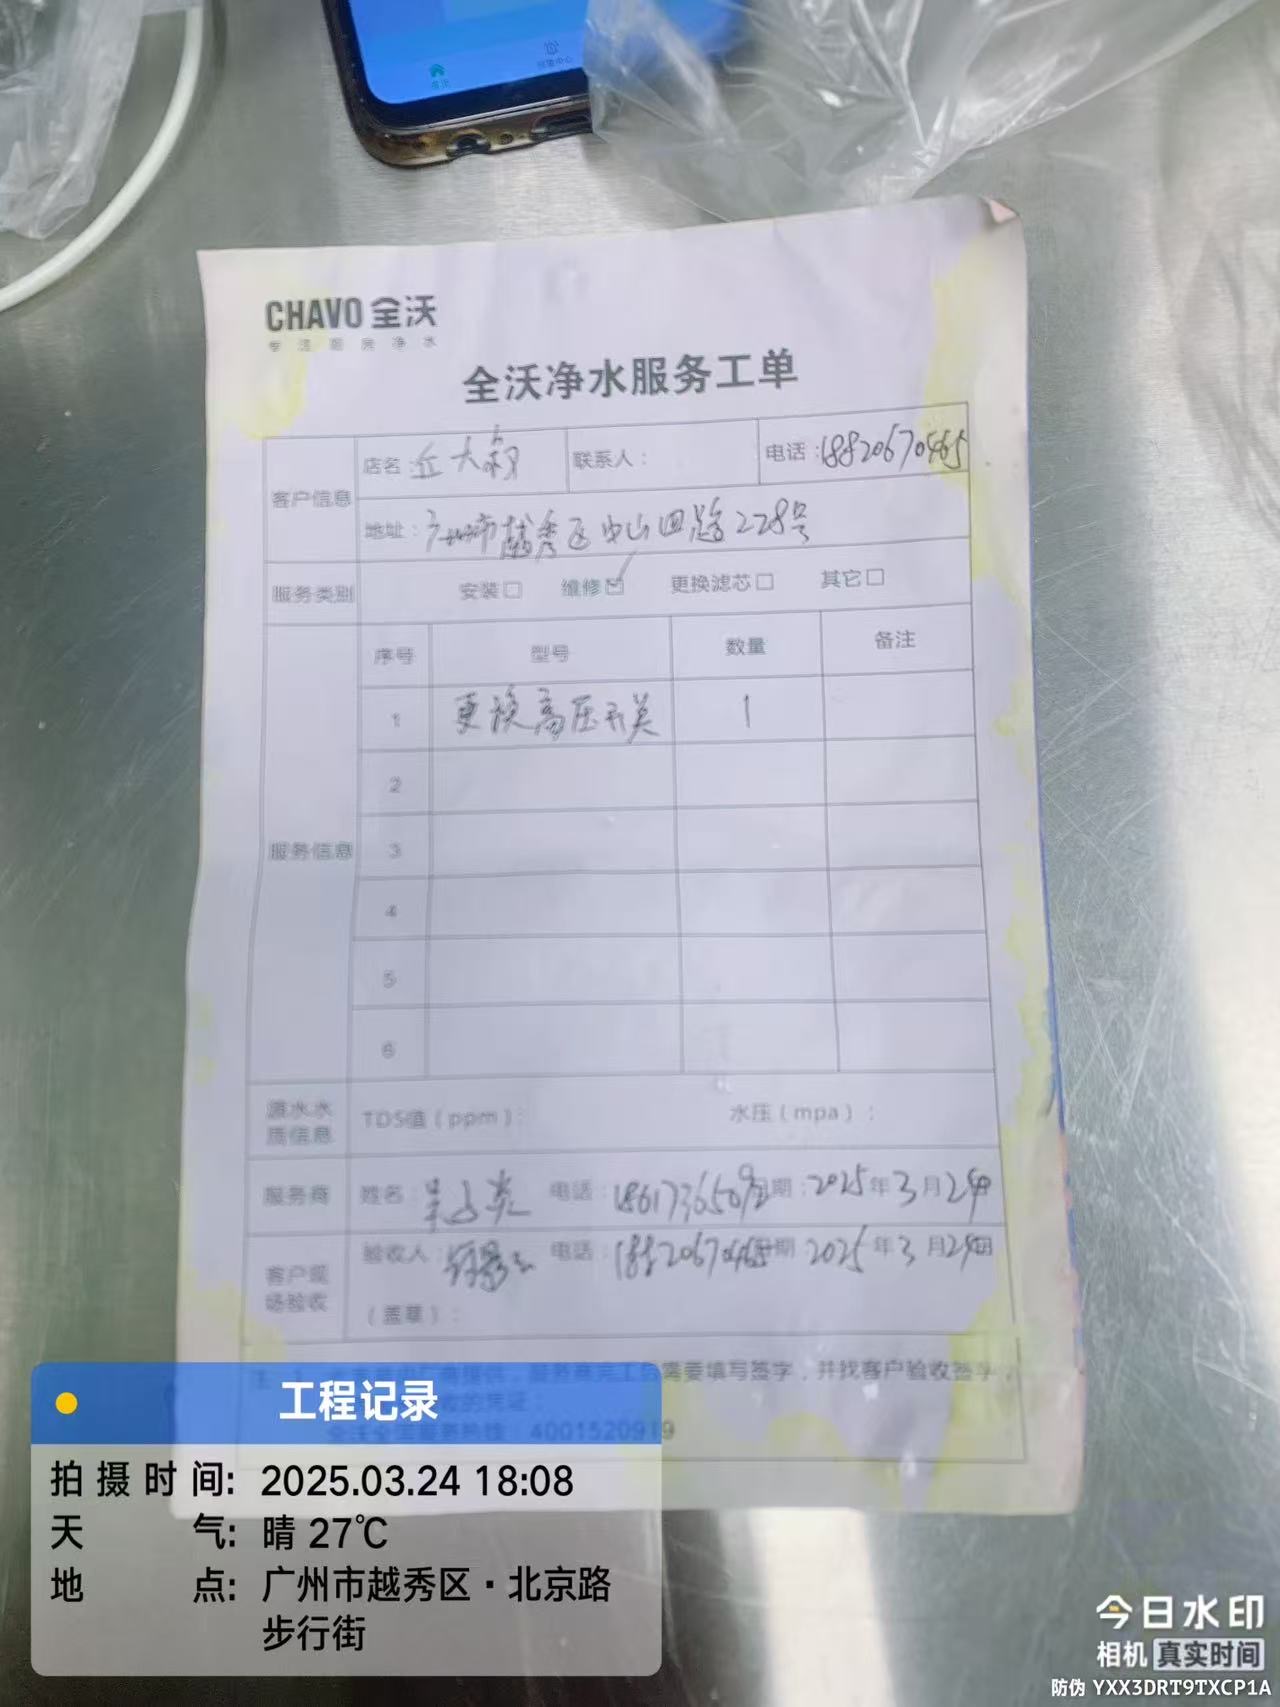 CHAVO 全沃
专注厨房净水
全沃净水服务工单
客户信息
店名：丘大叔 联系人： 电话：18820670465
地址：广州市越秀区中山四路228号
服务类别 安装□ 维修☑ 更换滤芯□ 其它□
服务信息
序号 型号 数量 备注
1 更换高压开关 1
2
3
4
5
6
源水水质信息 TDS值（ppm）： 水压（mpa）：
服务商 姓名： 电话： 日期：2025年3月24日
客户现场验收 验收人： 电话：18820670465 日期：2025年3月24日
（盖章）：
服务商完工后需要填写签字，并找客户验收签字，
的凭证；
全沃全国服务热线：4001520919
工程记录
拍摄时间: 2025.03.24 18:08
天气: 晴 27℃
地点: 广州市越秀区·北京路
步行街
今日水印
相机 真实时间
防伪 YXX3DRT9TXCP1A